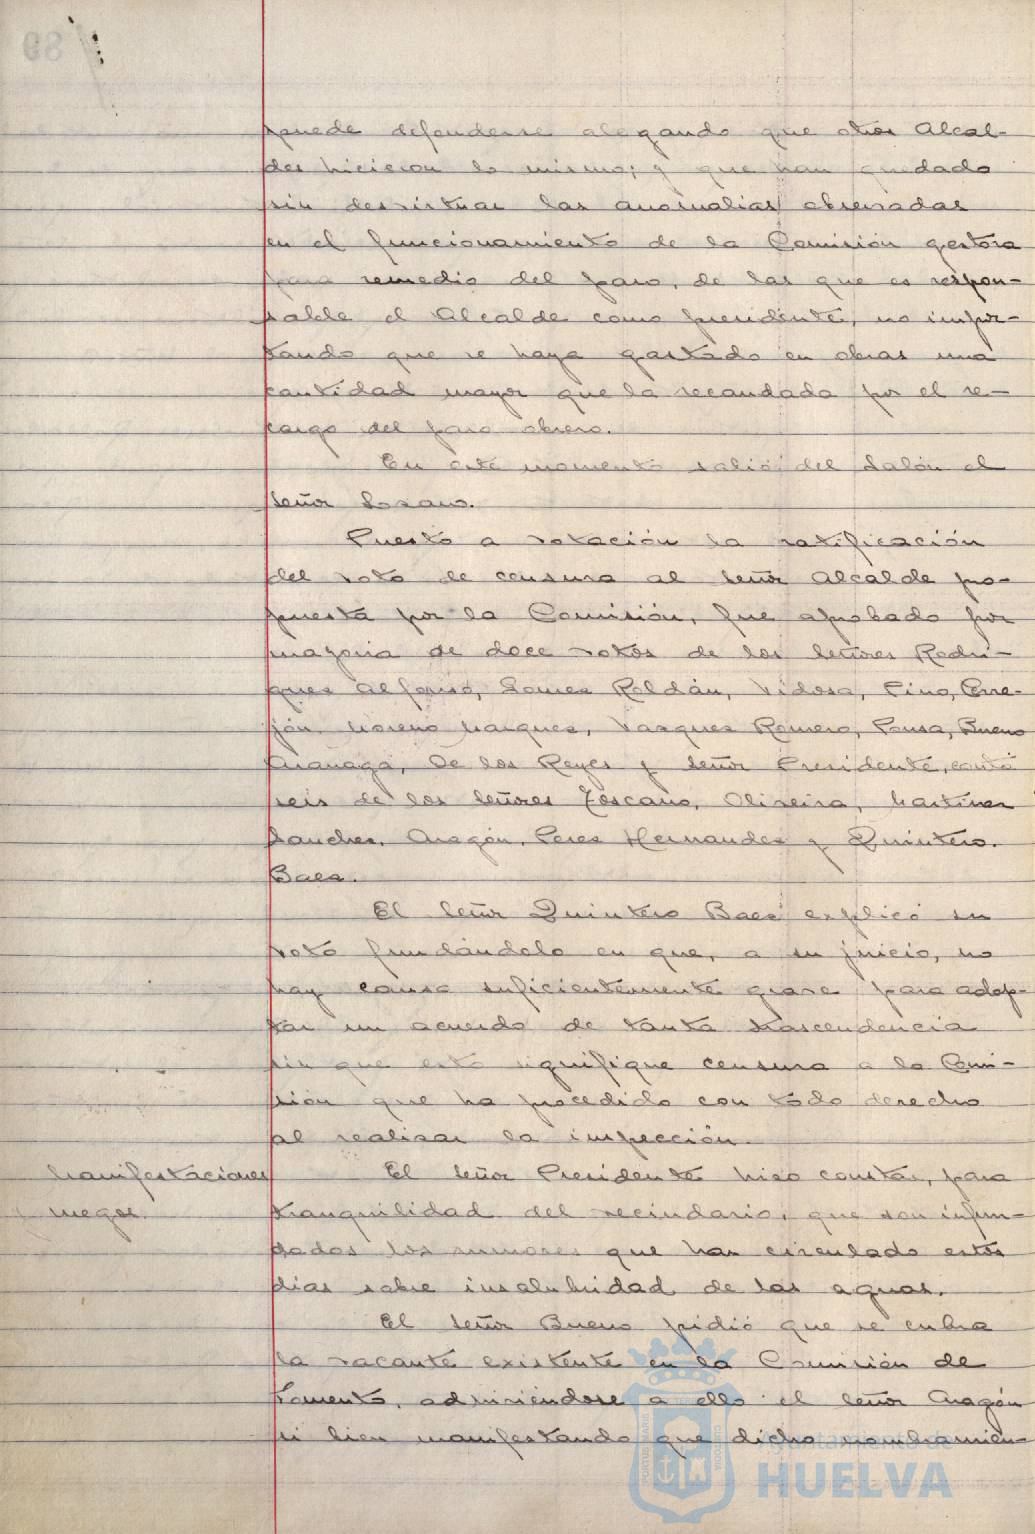 puede defenderse alegando que otros Alcal-
des hicieron lo mismo; y que han quedado
sin desvirtuar las anomalías observadas
en el funcionamiento de la Comisión gestora
para remedio del paro, de las que es respon-
sable el Alcalde como presidente, no impor-
tando que se haya gastado en obras una
cantidad mayor que la recaudada por el re-
cargo del paro obrero.
En este momento salió del Salón el
Señor Lozano.
Puesto a votación la ratificación
del voto de censura al Señor Alcalde pro-
puesta por la Comisión, fue aprobado por
mayoria de doce votos de los Señores Rodri-
guez Alfonso, Gomez Roldán, Vidosa, Pino, Corre-
jón, Moreno Marquez, Vazquez Romero, Ponsa, Bueno
De los Reyes y Señor Presidente, contra
seis de los Señores Toscano, Oliveira, Martinez
Sanchez, Aragón, Perez Hernandez y Quintero
Baez.
El Señor Quintero Baez explicó su
voto fundándolo en que, a su juicio, no
hay causa suficientemente grave para adop-
tar un acuerdo de tanta trascendencia
sin que esto signifique censura a la Comi-
sión que ha procedido con todo derecho
al realizar la inspección.
Manifestaciones
y ruegos.
El Señor Presidente hizo constar, para
tranquilidad del vecindario, que son infun-
dados los rumores que han circulado estos
dias sobre insalubridad de las aguas.
El Señor Bueno pidió que se cubra
la vacante existente en la Comisión de
Fomento, adhiriéndose a ello el Señor Aragón
si bien manifestando que dicho nombramien-
Ayuntamiento de
HUELVA